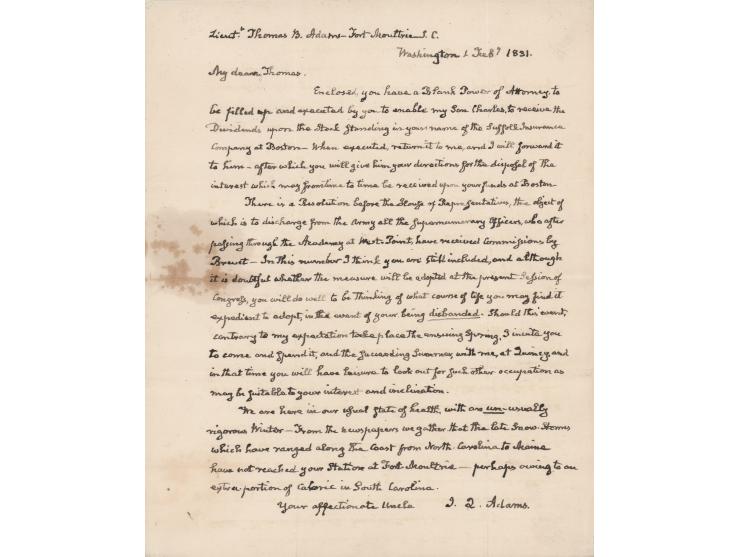 Lieut.t Thomas B. Adams - Fort Moultrie S. C.
Washington 1 Feby 1831.
My dear Thomas.
Enclosed, you have a Blank Power of Attorney, to
be filled up and executed by you to enable my Son Charles, to receive the
Dividends upon the Stock Standing in your name of the Suffolk Insurance
Company at Boston - When executed, return it to me, and I will forward it
to him - after which you will give him your directions for the disposal of the
interest which may from time to time be received upon your funds at Boston
There is a Resolution before the House of Representatives, the object of
which is to discharge from the Army all the Supernumerary Officers, who after
passing through the Academy at West-Point, have received Commissions by
Brevet - In this number I think you are still included, and although
it is doubtful whether the measure will be adopted at the present Session of
Congress, you will do well to be thinking of what course of life you may find it
expedient to adopt, in the event of your being disbanded. Should this event,
contrary to my expectation take place the ensuing Spring, I invite you
to come and spend it, and the succeeding Summer, with me, at Quincy, and
in that time you will have leisure to look out for such other occupation as
may be suitable to your interest and inclination.
We are here in our usual state of health, with an un-usually
rigorous Winter - From the newspapers we gather that the late Snow-Storms
which have ranged along the Coast from North-Carolina to Maine
have not reached your Station at Fort Moultrie - perhaps owing to an
extra-portion of Caloric in South Carolina.
Your affectionate Uncle J. Q. Adams.